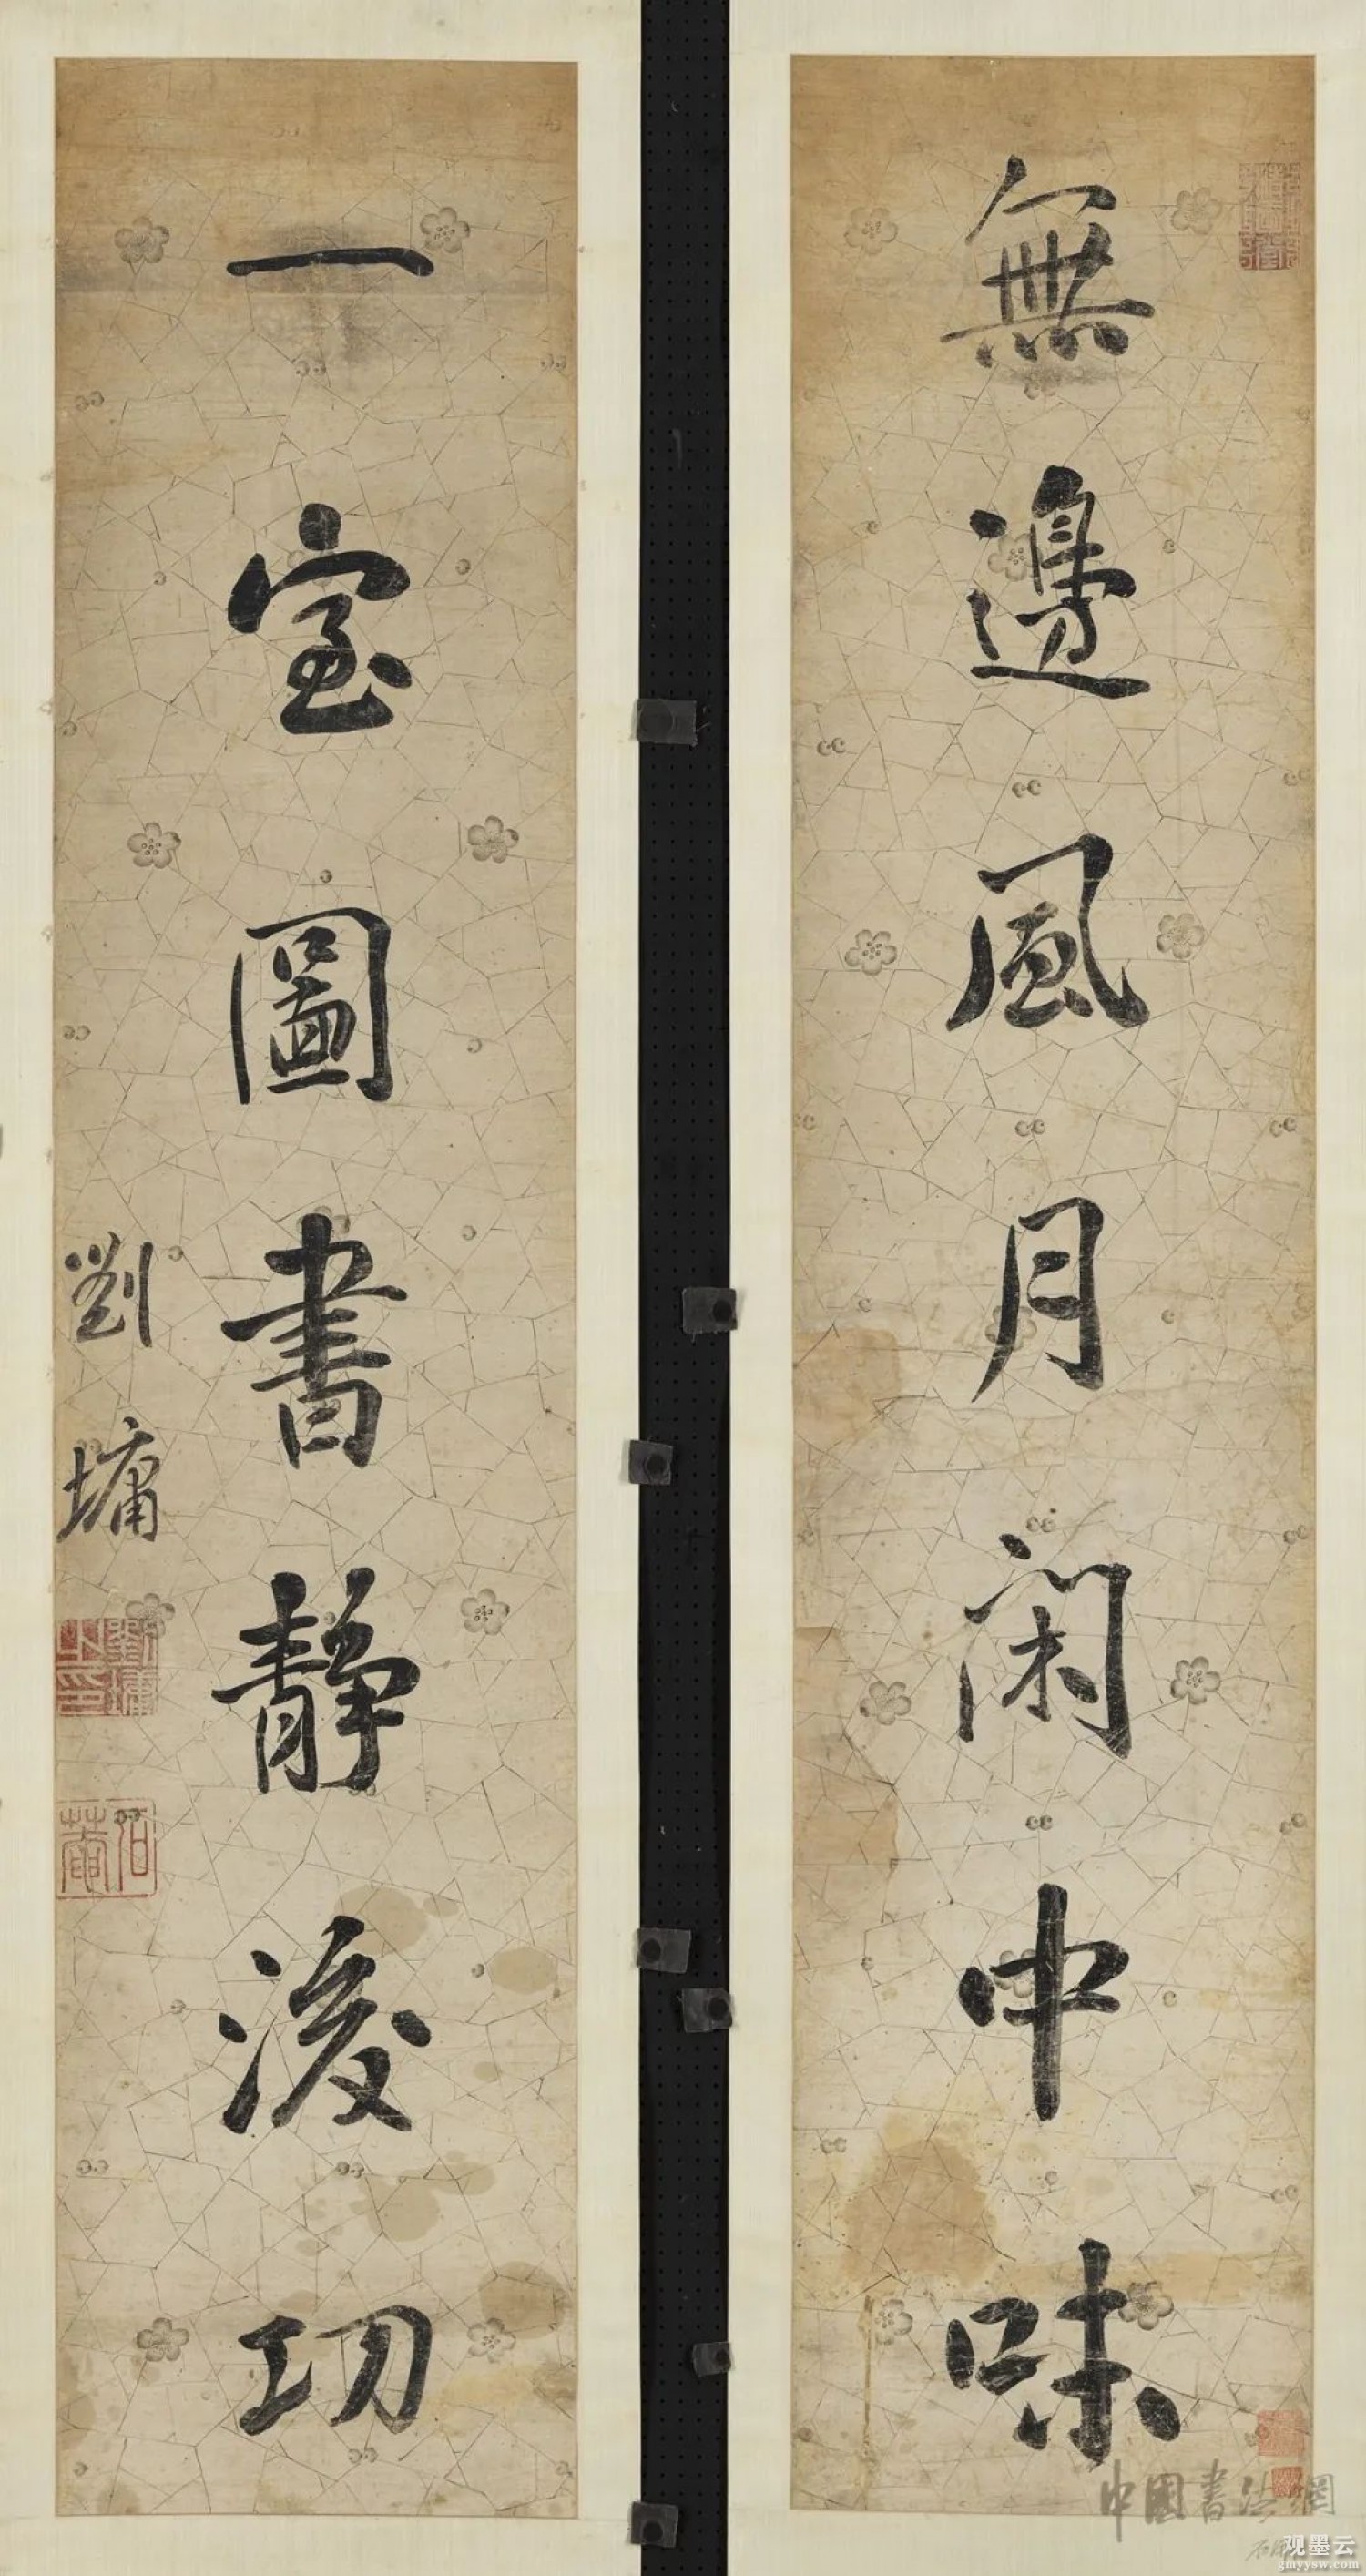 無邊風月閑中味
一室圖書静後功
劉墉
劉墉之印
石菴
中國書法網
观墨云
gmyysw.com